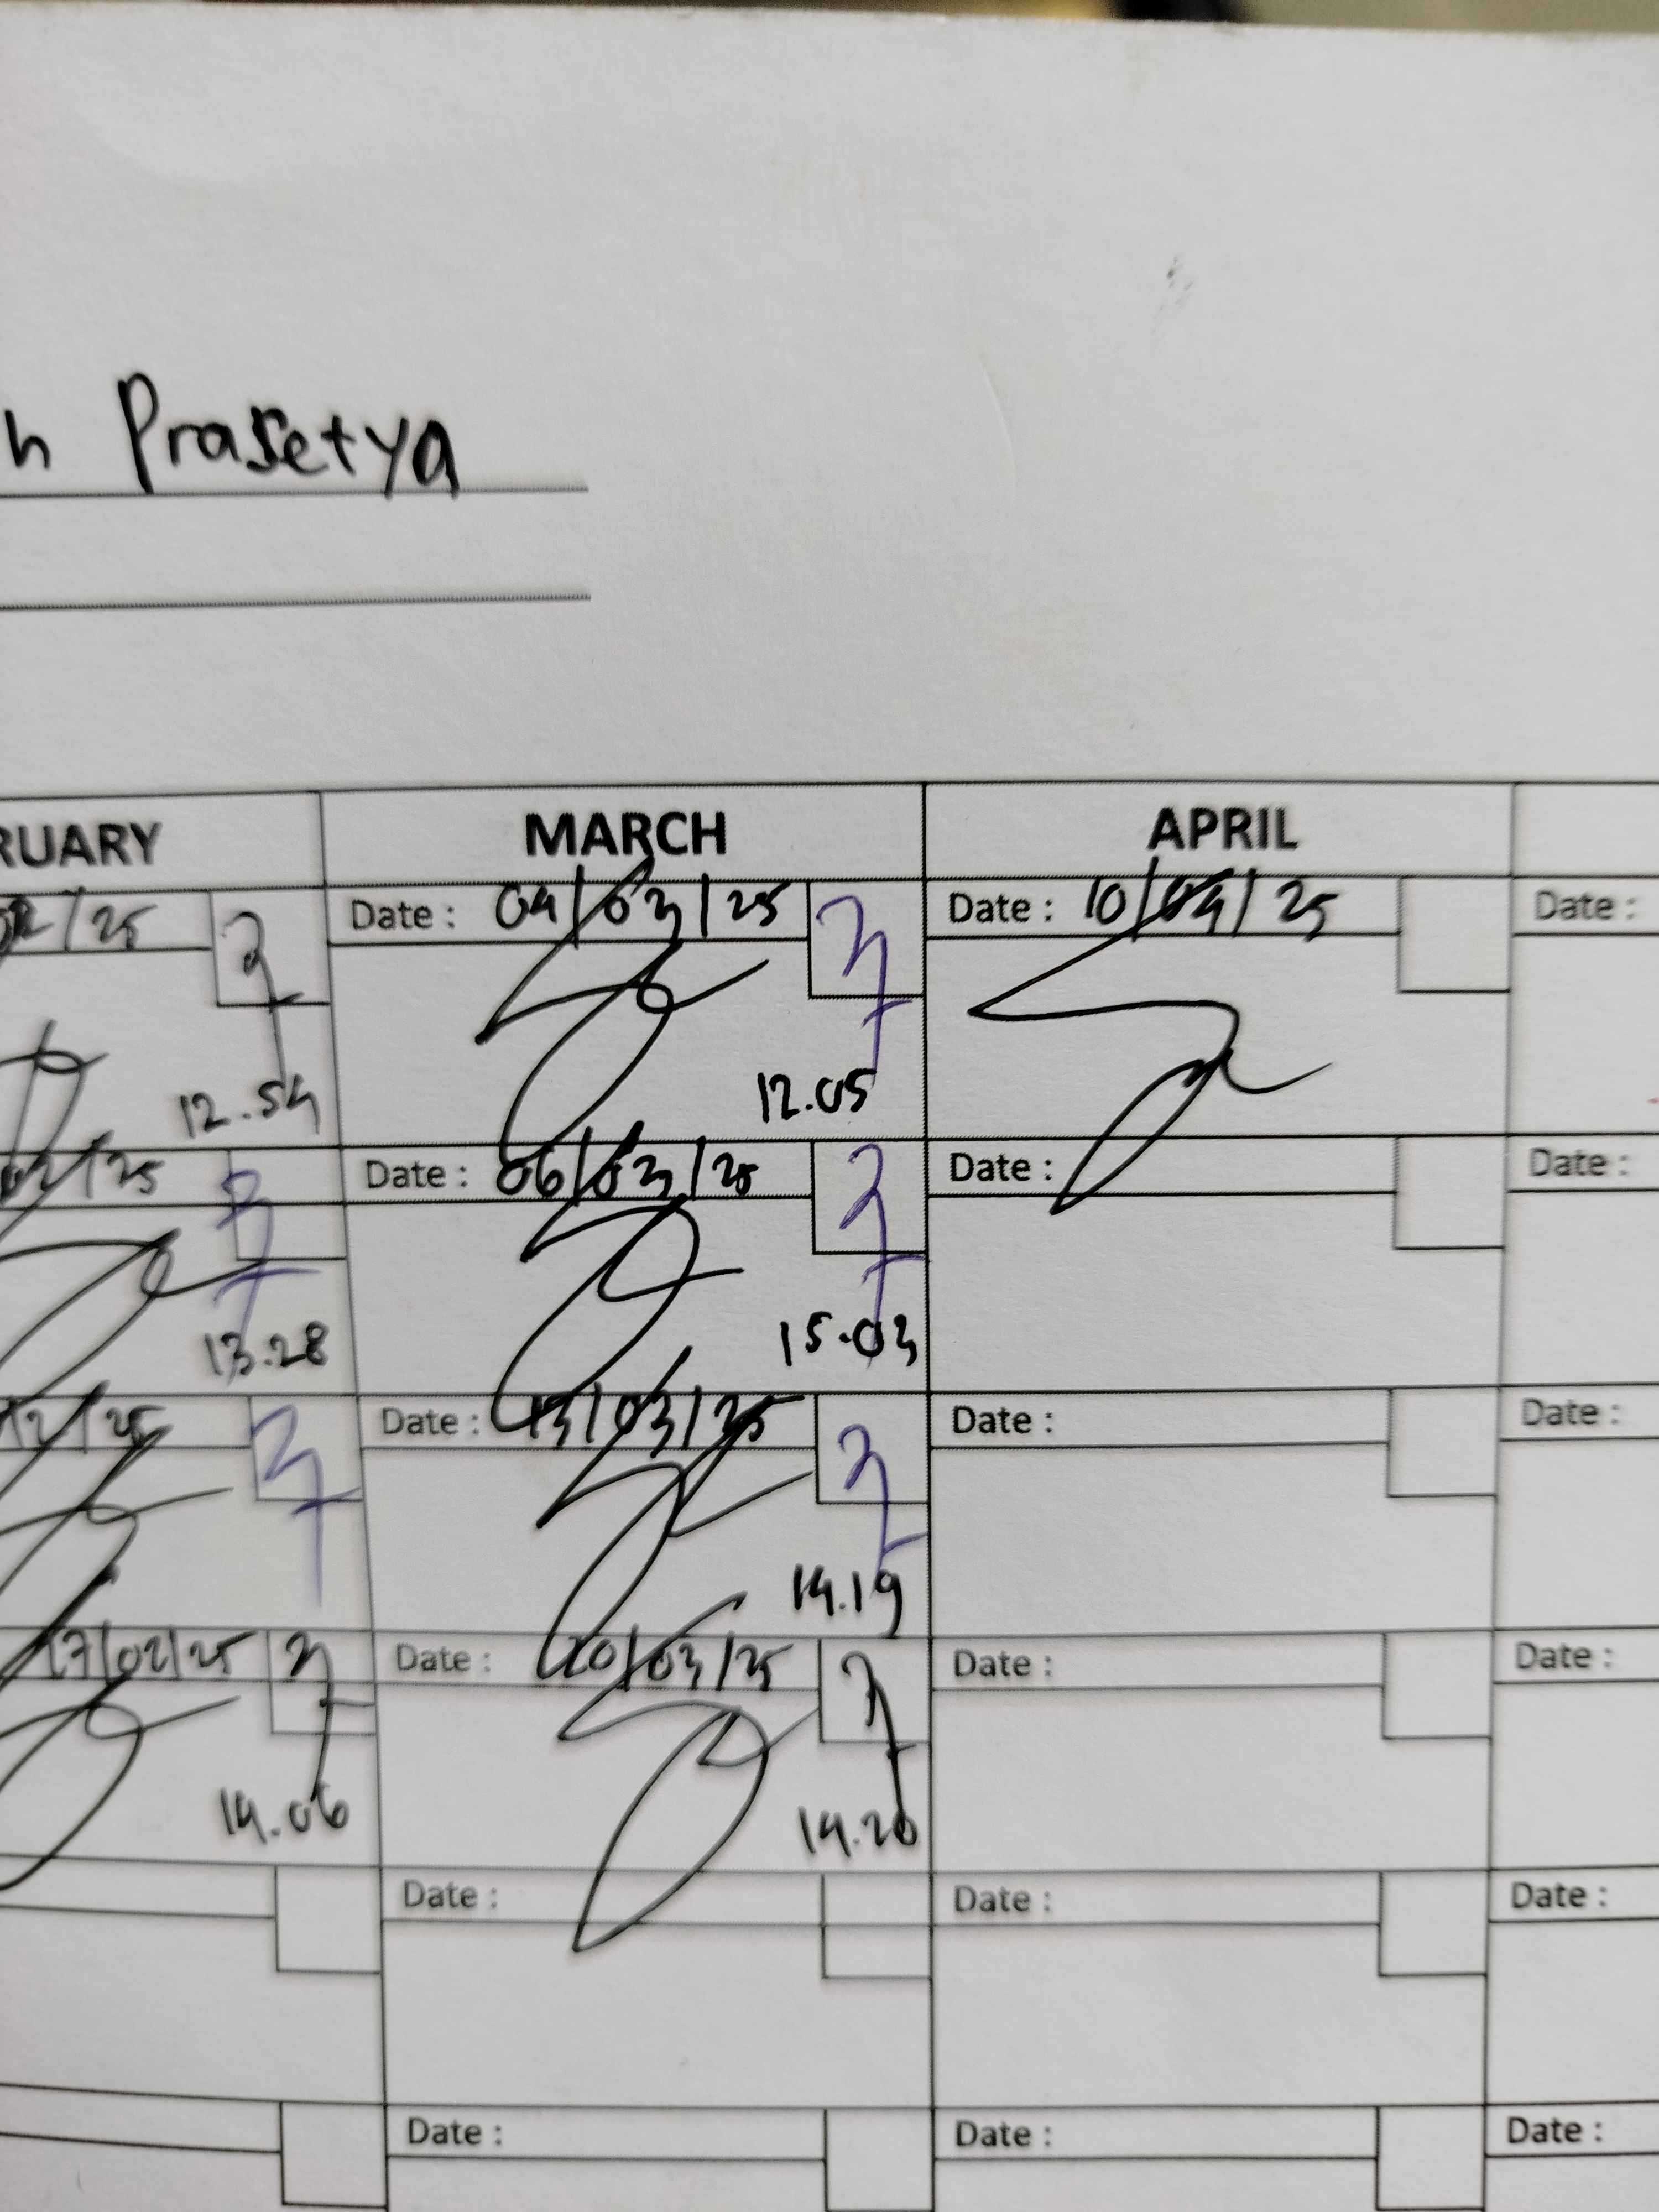 h Prasetya
RUARY MARCH APRIL
/25 Date : 04/03/25 Date : 10/04/25 Date :
12.54 12.05
02/25 Date : 06/03/25 Date : Date :
13.28 15.03
2/25 Date : 13/03/25 Date : Date :
14.19
17/02/25 Date : 20/03/25 Date : Date :
14.06 14.20
Date : Date : Date :
Date : Date : Date :